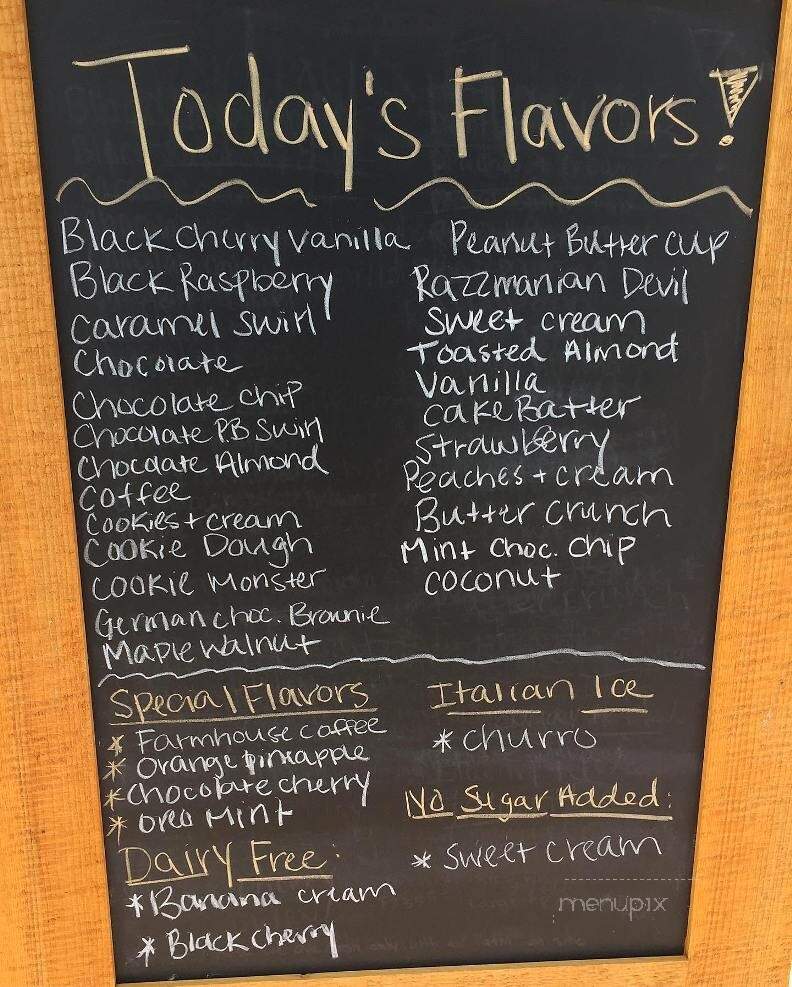 Today's Flavors!
Black Cherry Vanilla
Black Raspberry
Caramel Swirl
Chocolate
Chocolate Chip
Chocolate P.B Swirl
Chocolate Almond
Coffee
Cookies + cream
Cookie Dough
Cookie Monster
German choc. Brownie
Maple Walnut
Peanut Butter cup
Razzmanian Devil
Sweet cream
Toasted Almond
Vanilla
Cake Batter
Strawberry
Peaches + cream
Butter Crunch
Mint Choc. Chip
Coconut
Special Flavors
* Farmhouse Coffee
* Orange pineapple
* Chocolate cherry
* Oreo Mint
Dairy Free:
* Banana cream
* Black cherry
Italian Ice
* churro
No Sugar Added:
* Sweet cream
menupix